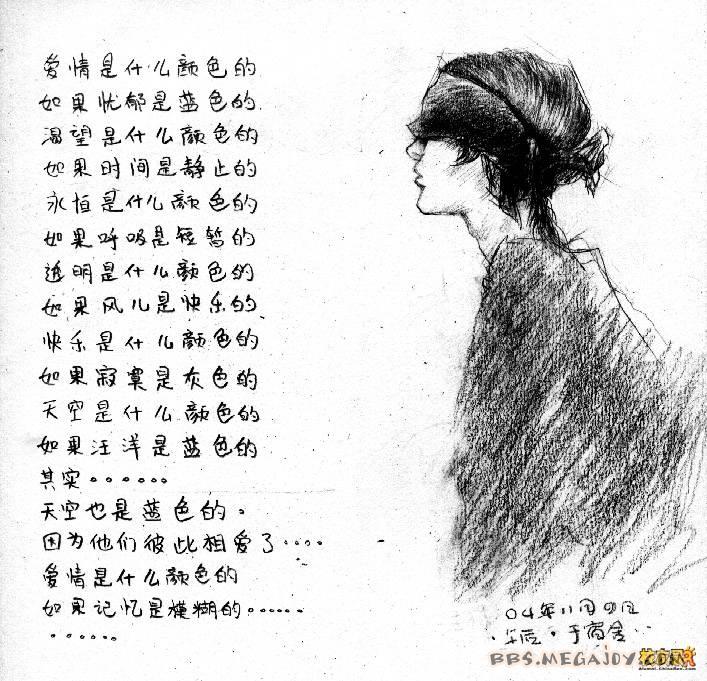 爱情是什么颜色的
如果忧郁是蓝色的
渴望是什么颜色的
如果时间是静止的
永恒是什么颜色的
如果呼吸是短暂的
透明是什么颜色的
如果风儿是快乐的
快乐是什么颜色的
如果寂寞是灰色的
天空是什么颜色的
如果汪洋是蓝色的
其实。。。。。。
天空也是蓝色的。
因为他们彼此相爱了....
爱情是什么颜色的
如果记忆是模糊的......
......
04年11月
于宿舍
BBS.MEGAJOY.COM